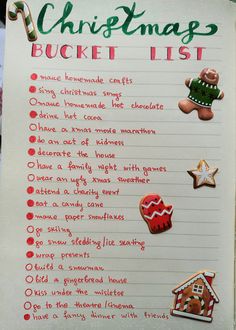 Christmas
BUCKET LIST
make homemade crafts
sing christmas songs
make homemade hot chocolate
drink hot cocoa
have a xmas movie marathon
do an act of kidness
decorate the house
have a family night with games
wear an ugly xmas sweather
attend a charity event
eat a candy cane
make paper snowflakes
go skiing
go snow sledding/ice skating
wrap presents
build a snowman
build a gingerbread house
kiss under the mistletoe
go to the theatre/cinema
have a fancy dinner with friends